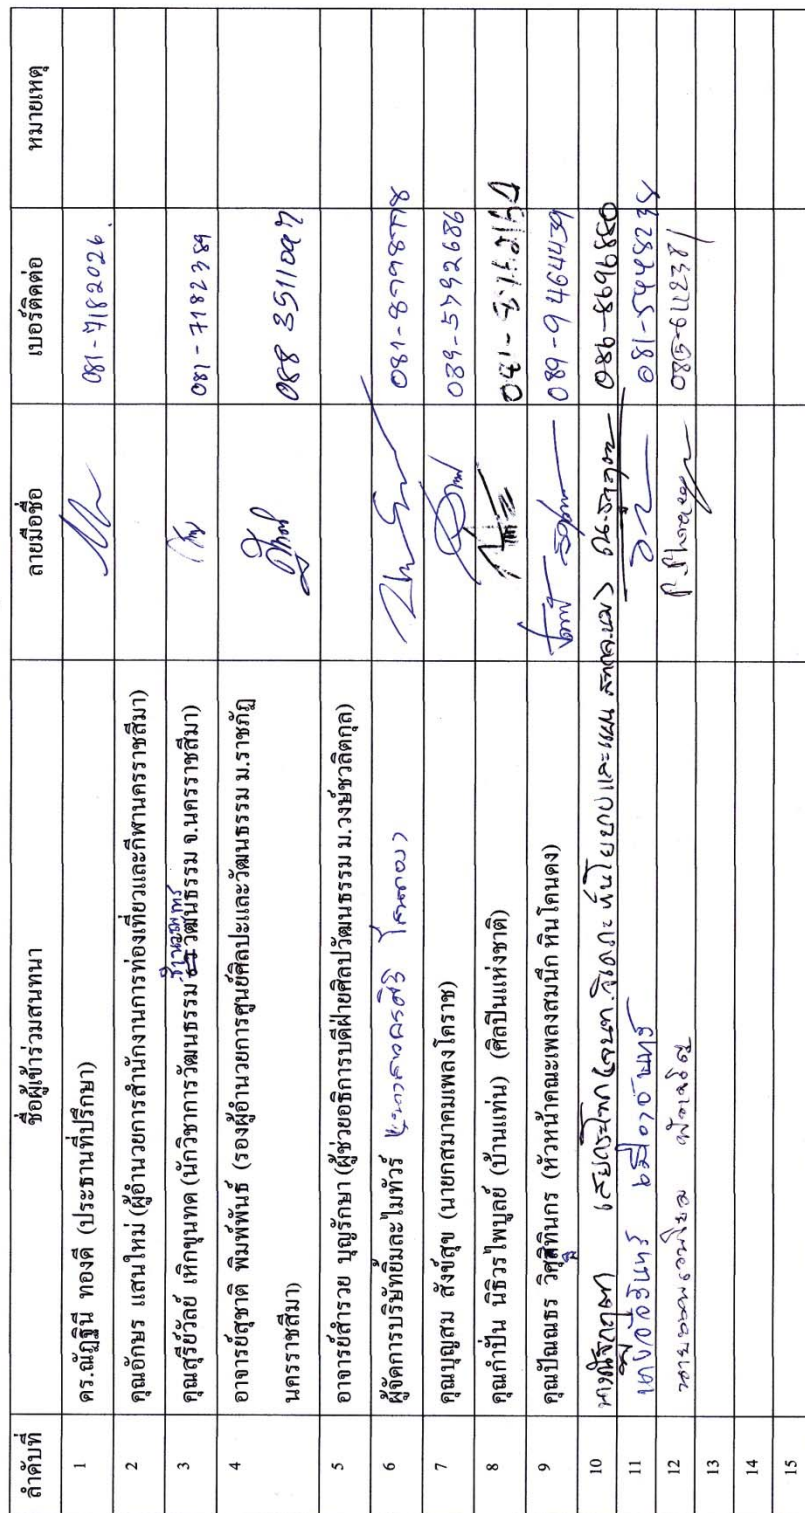 ลำดับที่ ชื่อผู้เข้าร่วมสนทนา ลายมือชื่อ เบอร์ติดต่อ หมายเหตุ
1 ดร.ณัฏฐินี ทองดี (ประธานที่ปรึกษา) 081-7182026.
2 คุณอักษร แสนใหม่ (ผู้อำนวยการสำนักงานการท่องเที่ยวและกีฬานครราชสีมา)
3 คุณสุรีย์วัลย์ เหิกขุนทด (นักวิชาการวัฒนธรรม ชำนาญการ วัฒนธรรม จ.นครราชสีมา) 081-7182389
4 อาจารย์สุชาติ พิมพ์พันธ์ (รองผู้อำนวยการศูนย์ศิลปะและวัฒนธรรม ม.ราชภัฏ
นครราชสีมา) 088 3511097
5 อาจารย์สำรวย บุญรักษา (ผู้ช่วยอธิการบดีฝ่ายศิลปวัฒนธรรม ม.วงษ์ชวลิตกุล)
6 ผู้จัดการบริษัทยิมละไมทัวร์ 081-8798778
7 คุณบุญสม สังข์สุข (นายกสมาคมเพลงโคราช) 089-5792686
8 คุณกำปั่น นิธิวรไพบูลย์ (บ้านแท่น) (ศิลปินแห่งชาติ)
9 คุณปัณณธร (หัวหน้าคณะเพลงสมนึก หินโคนดง) 089-9464439
10 086-8696880
11 081-5998238
12 085-6112381
13
14
15